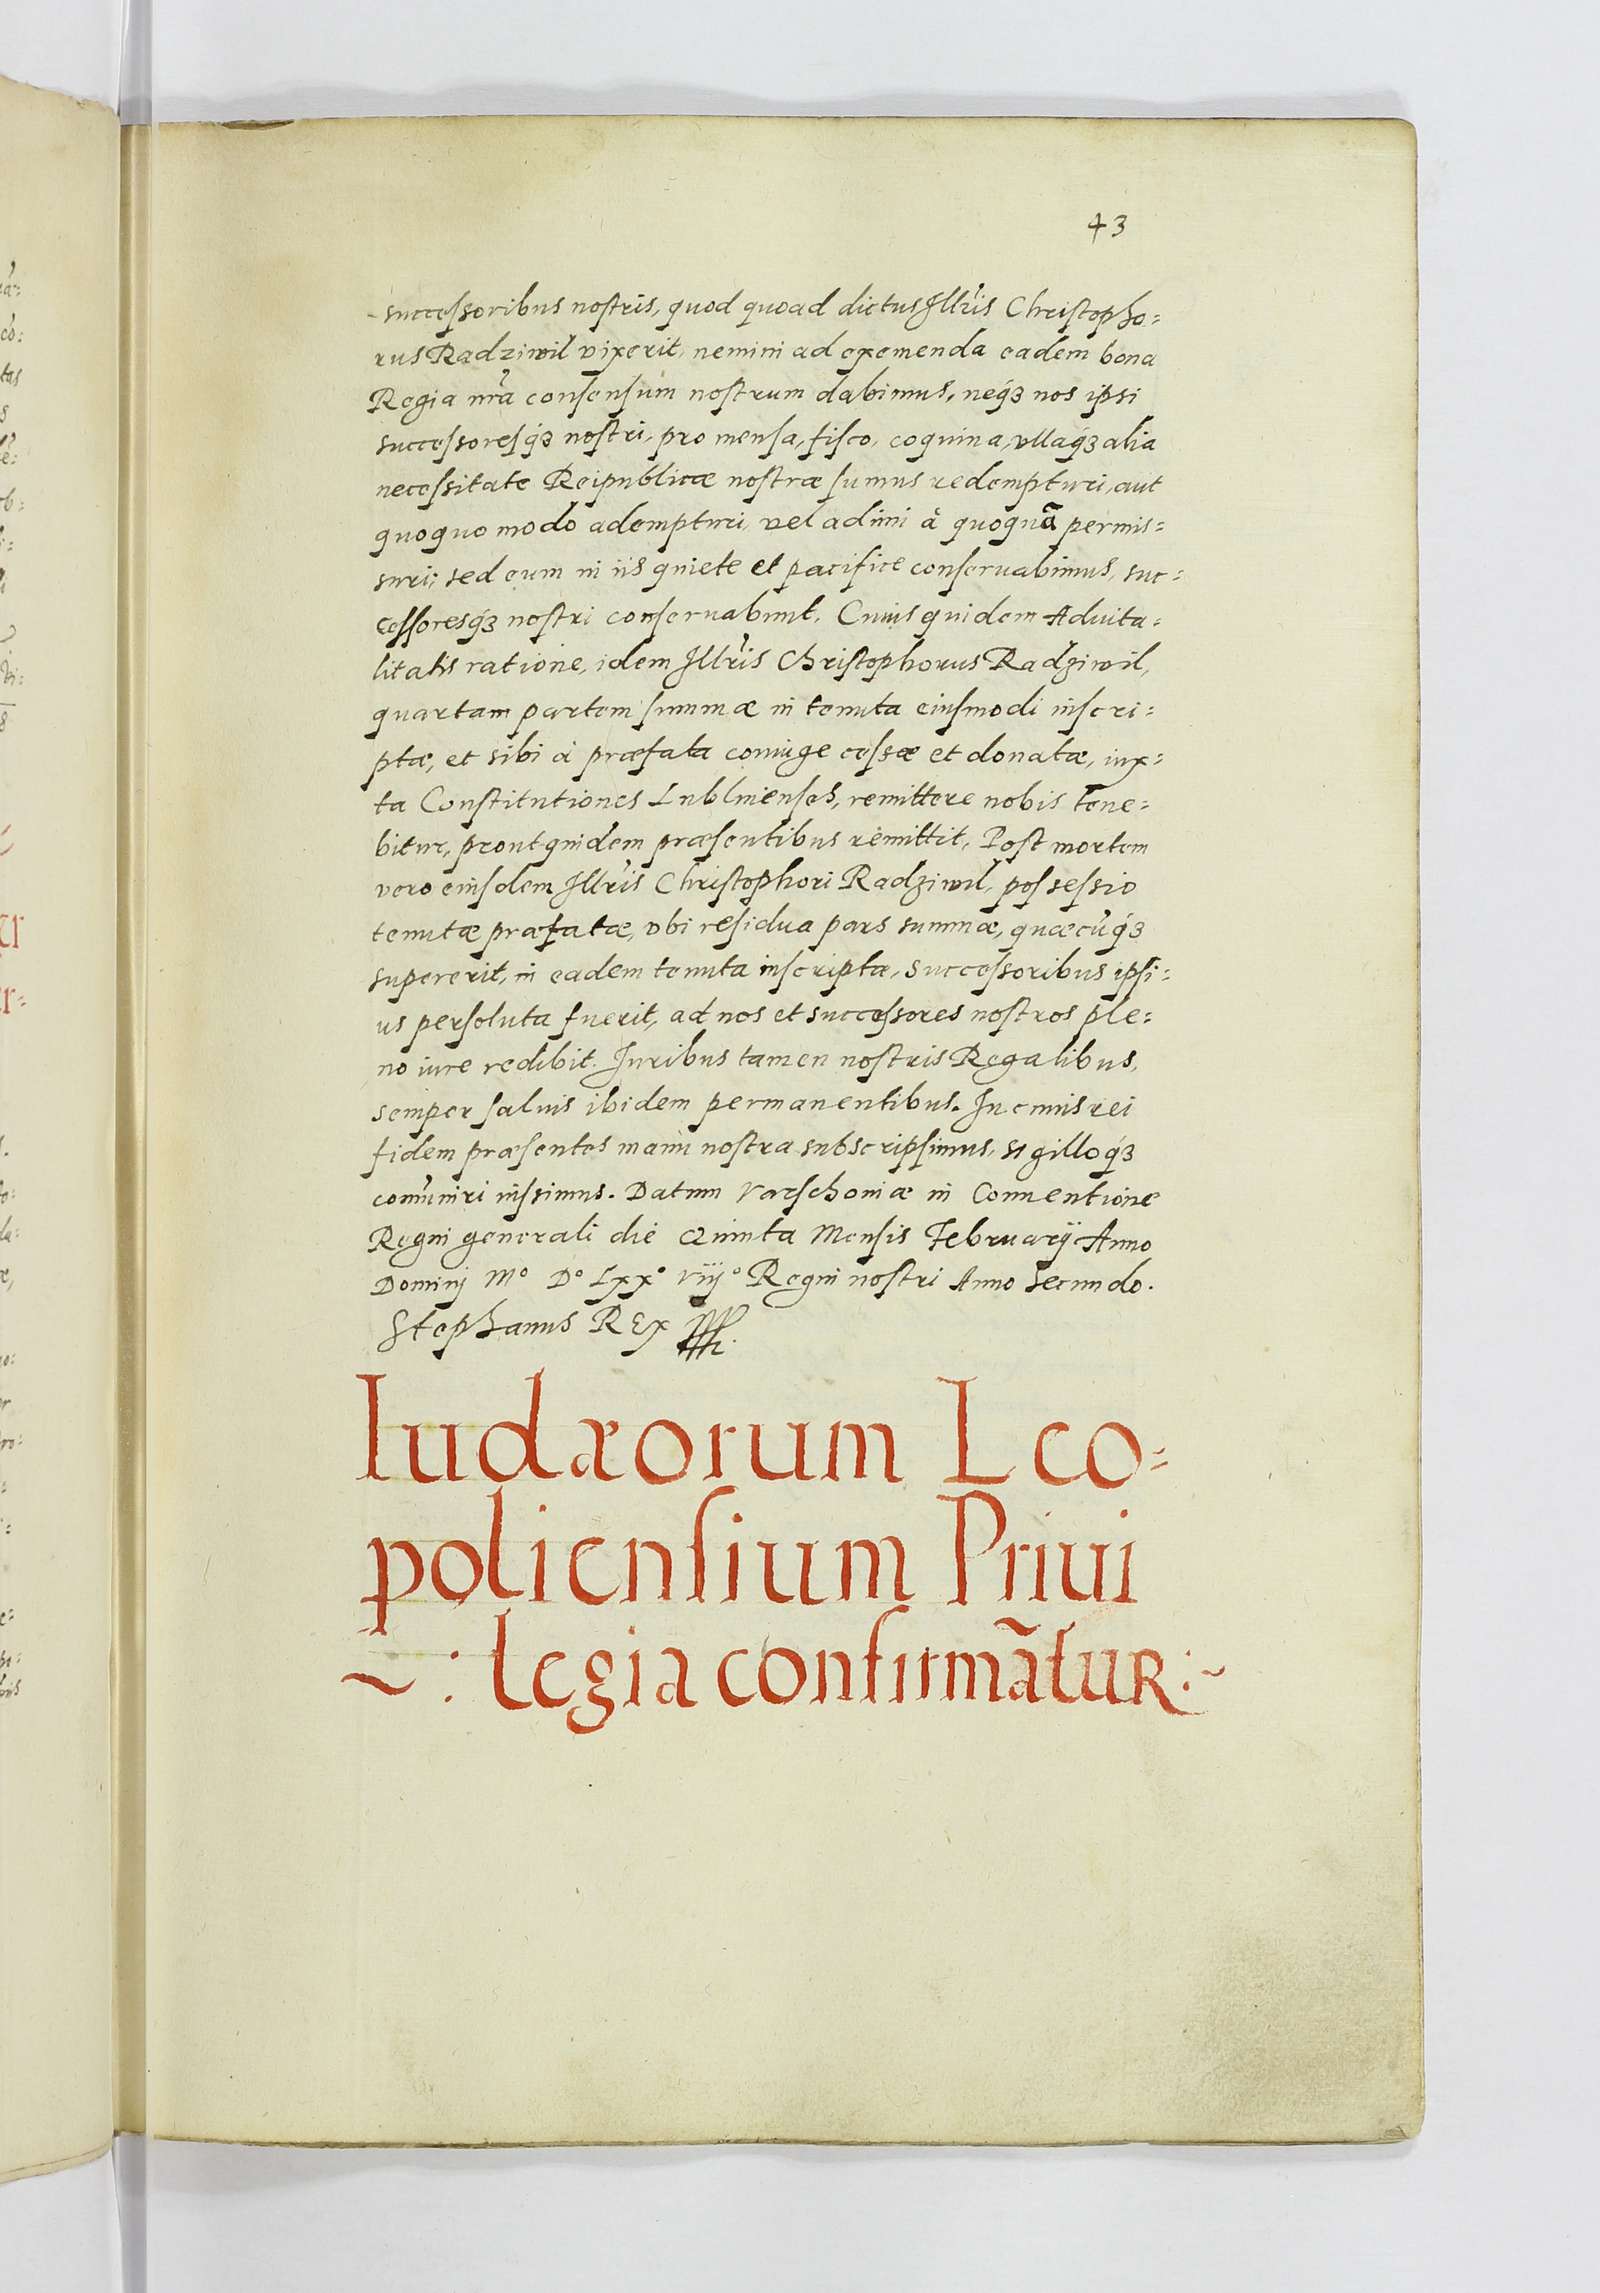 43
successoribus nostris, quod quoad dictus Illr̃is Christopho=
rus Radziwil vixerit, nemini ad exemenda eadem bona
Regia nr̃a consensum nostrum dabimus, neqꝫ nos ipsi
successoresqꝫ nostri, pro mensa, fisco, coquina, vllaqꝫ alia
necessitate Reipublicæ nostræ sumus redempturi, aut
quoquo modo adempturi, vel adimi à quoquã permis=
suri; sed eum in iis quiete et pacifice conseruabimus, suc=
cessoresqꝫ nostri conseruabunt. Cuius quidem Aduita=
litatis ratione, idem Illr̃is Christophorus Radziwil,
quartam partem summæ in tenuta eiusmodi inscri=
ptæ, et sibi à præfata coniuge cessæ et donatæ, iux=
ta Constitutiones Lublinenses, remittere nobis tene=
bitur, prout quidem præsentibus remittit, Post mortem
vero eiusdem Illr̃is Christophori Radziwil, possessio
tenutæ præfatæ, vbi residua pars summæ, quæcũqꝫ
supererit, in eadem tenuta inscriptæ, successoribus ipsi=
us persoluta fuerit, ad nos et successores nostros ple=
no iure redibit. Iuribus tamen nostris Regalibus,
semper saluis ibidem permanentibus. In cuius rei
fidem præsentes manu nostra subscripsimus, sigilloqꝫ
com̃uniri iussimus. Datum Varschouiæ in Conuentione
Regni generali die Quinta Mensis Februarij Anno
Dominj Mº Dº Lxxº viijº Regni nostri Anno Secundo.
Stephanus REx
Iudæorum Leo=
poliensium Priui
~ : legia confirmãtur : ~